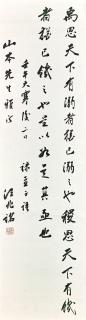 禹思天下有溺者猶己溺之也稷思天下有饑
者猶己饑之也是以如是其急也
壬午大寒後二日 錄孟子語
山本先生
汪兆銘